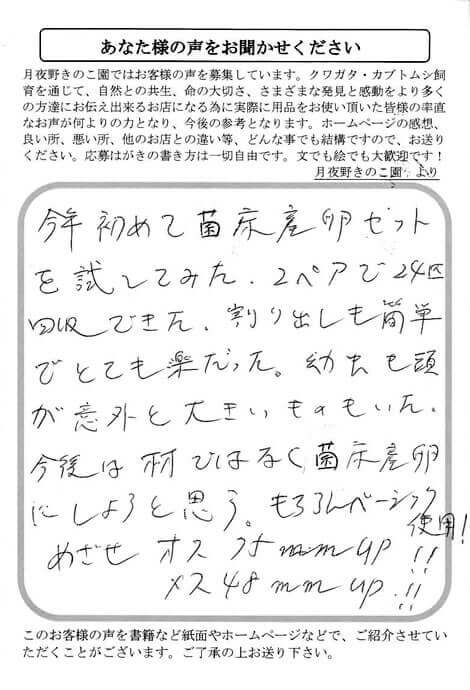 あなた様の声をお聞かせください
月夜野きのこ園ではお客様の声を募集しています。クワガタ・カブトムシ飼
育を通じて、自然との共生、命の大切さ、さまざまな発見と感動をより多く
の方達にお伝え出来るお店になる為に実際に用品をお使い頂いた皆様の率直
なお声が何よりの力となり、今後の参考となります。ホームページの感想、
良い所、悪い所、他のお店との違い等、どんな事でも結構ですので、お送り
ください。応募はがきの書き方は一切自由です。文でも絵でも大歓迎です!
月夜野きのこ園 より
今年初めて菌床産卵セット
を試してみた。2ペアで24匹
回収できた。割り出しも簡単
でとても楽だった。幼虫も頭
が意外と大きいものもいた。
今後は材ではなく菌床産卵
にしようと思う。もちろんベーシック
使用!
めざせ オス 75mmup!!
メス48mmup!!
このお客様の声を書籍など紙面やホームページなどで、ご紹介させてい
ただくことがございます。ご了承の上お送り下さい。